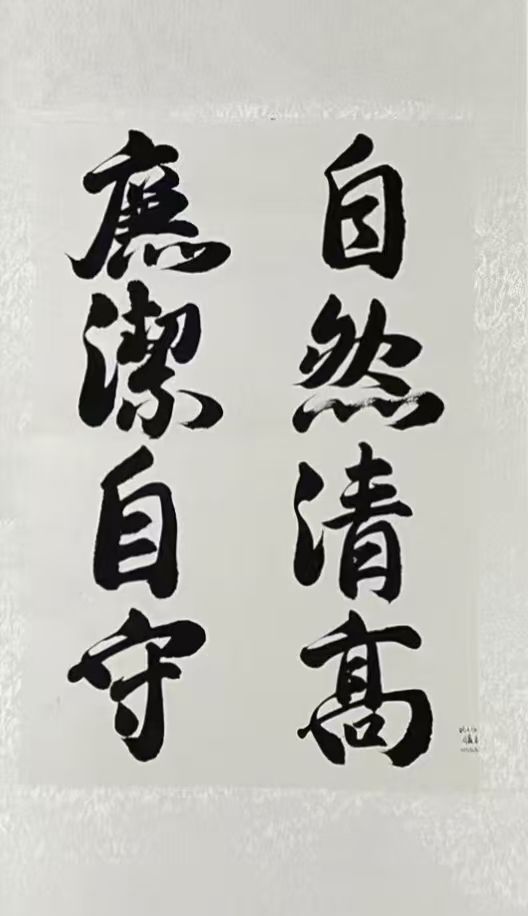 自然清髙
廉潔自守